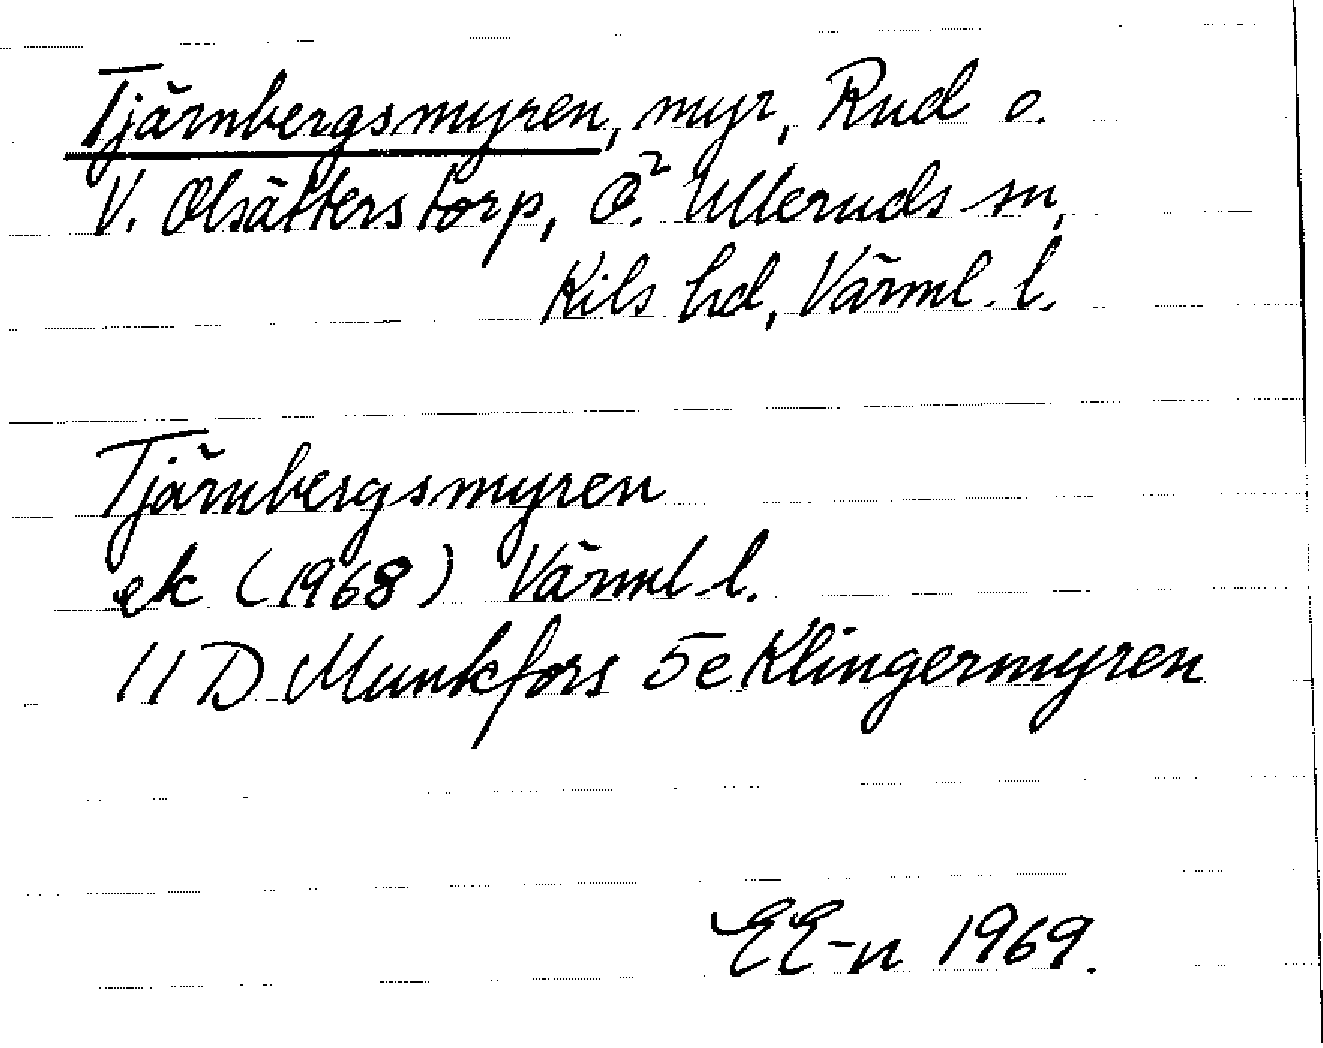 Tjärnbergsmyren, myr, Rud o.
V. Olsätters torp, Ö. Ulleruds sn,
Kils hd, Värml. l.
Tjärnbergsmyren
ek (1968) Värml l.
11 D Munkfors 5e Klingermyren
EE-n 1969.